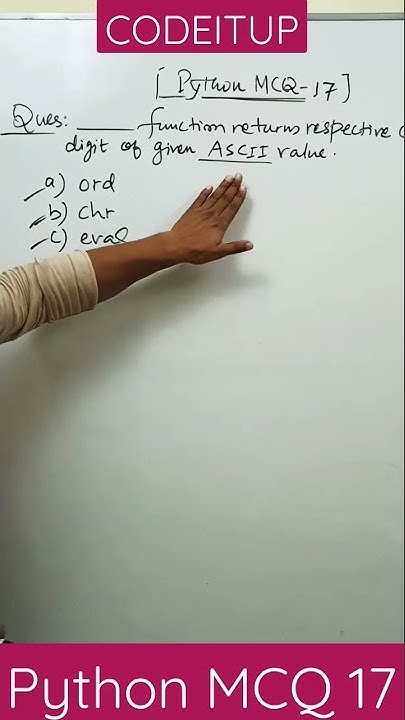 CODEITUP
[ Python MCQ-17 ]
Ques: ____ function returns respective
digit of given ASCII value.
a) ord
b) chr
c) eval
Python MCQ 17